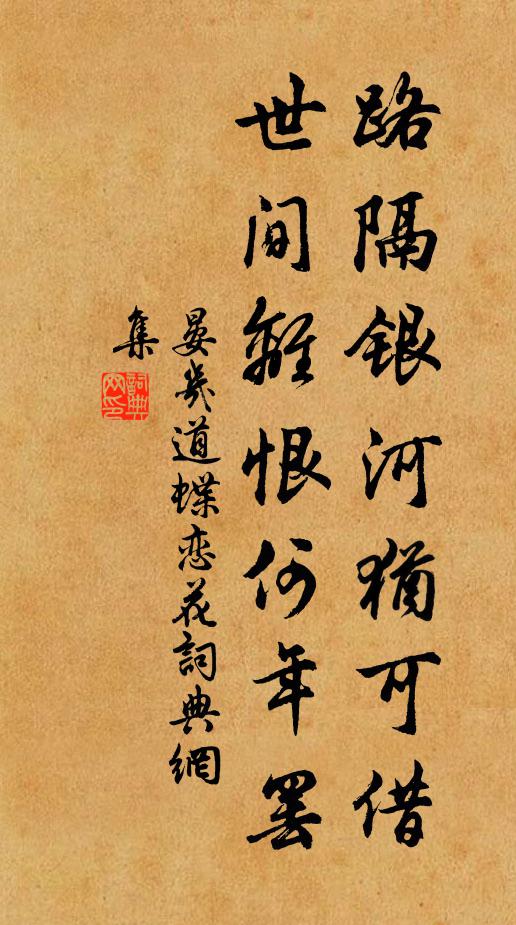 路隔银河猶可借
世间離恨何年罢
晏幾道蝶恋花詞典網
集
詞典网印